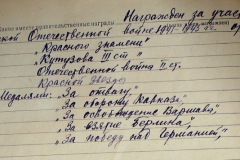 Награжден за участ
Какие имеет правительственные награды
ской Отечественной войне 1941-1945 гг. ор
„Красного знамени"
„Кутузова III ст"
„Отечественной война II ст.
Красной звезды
Медалями: „За отвагу",
„За оборону Кавказа"
„За освобождение Варшавы"
„За взятие Берлина",
„За победу над Германией",